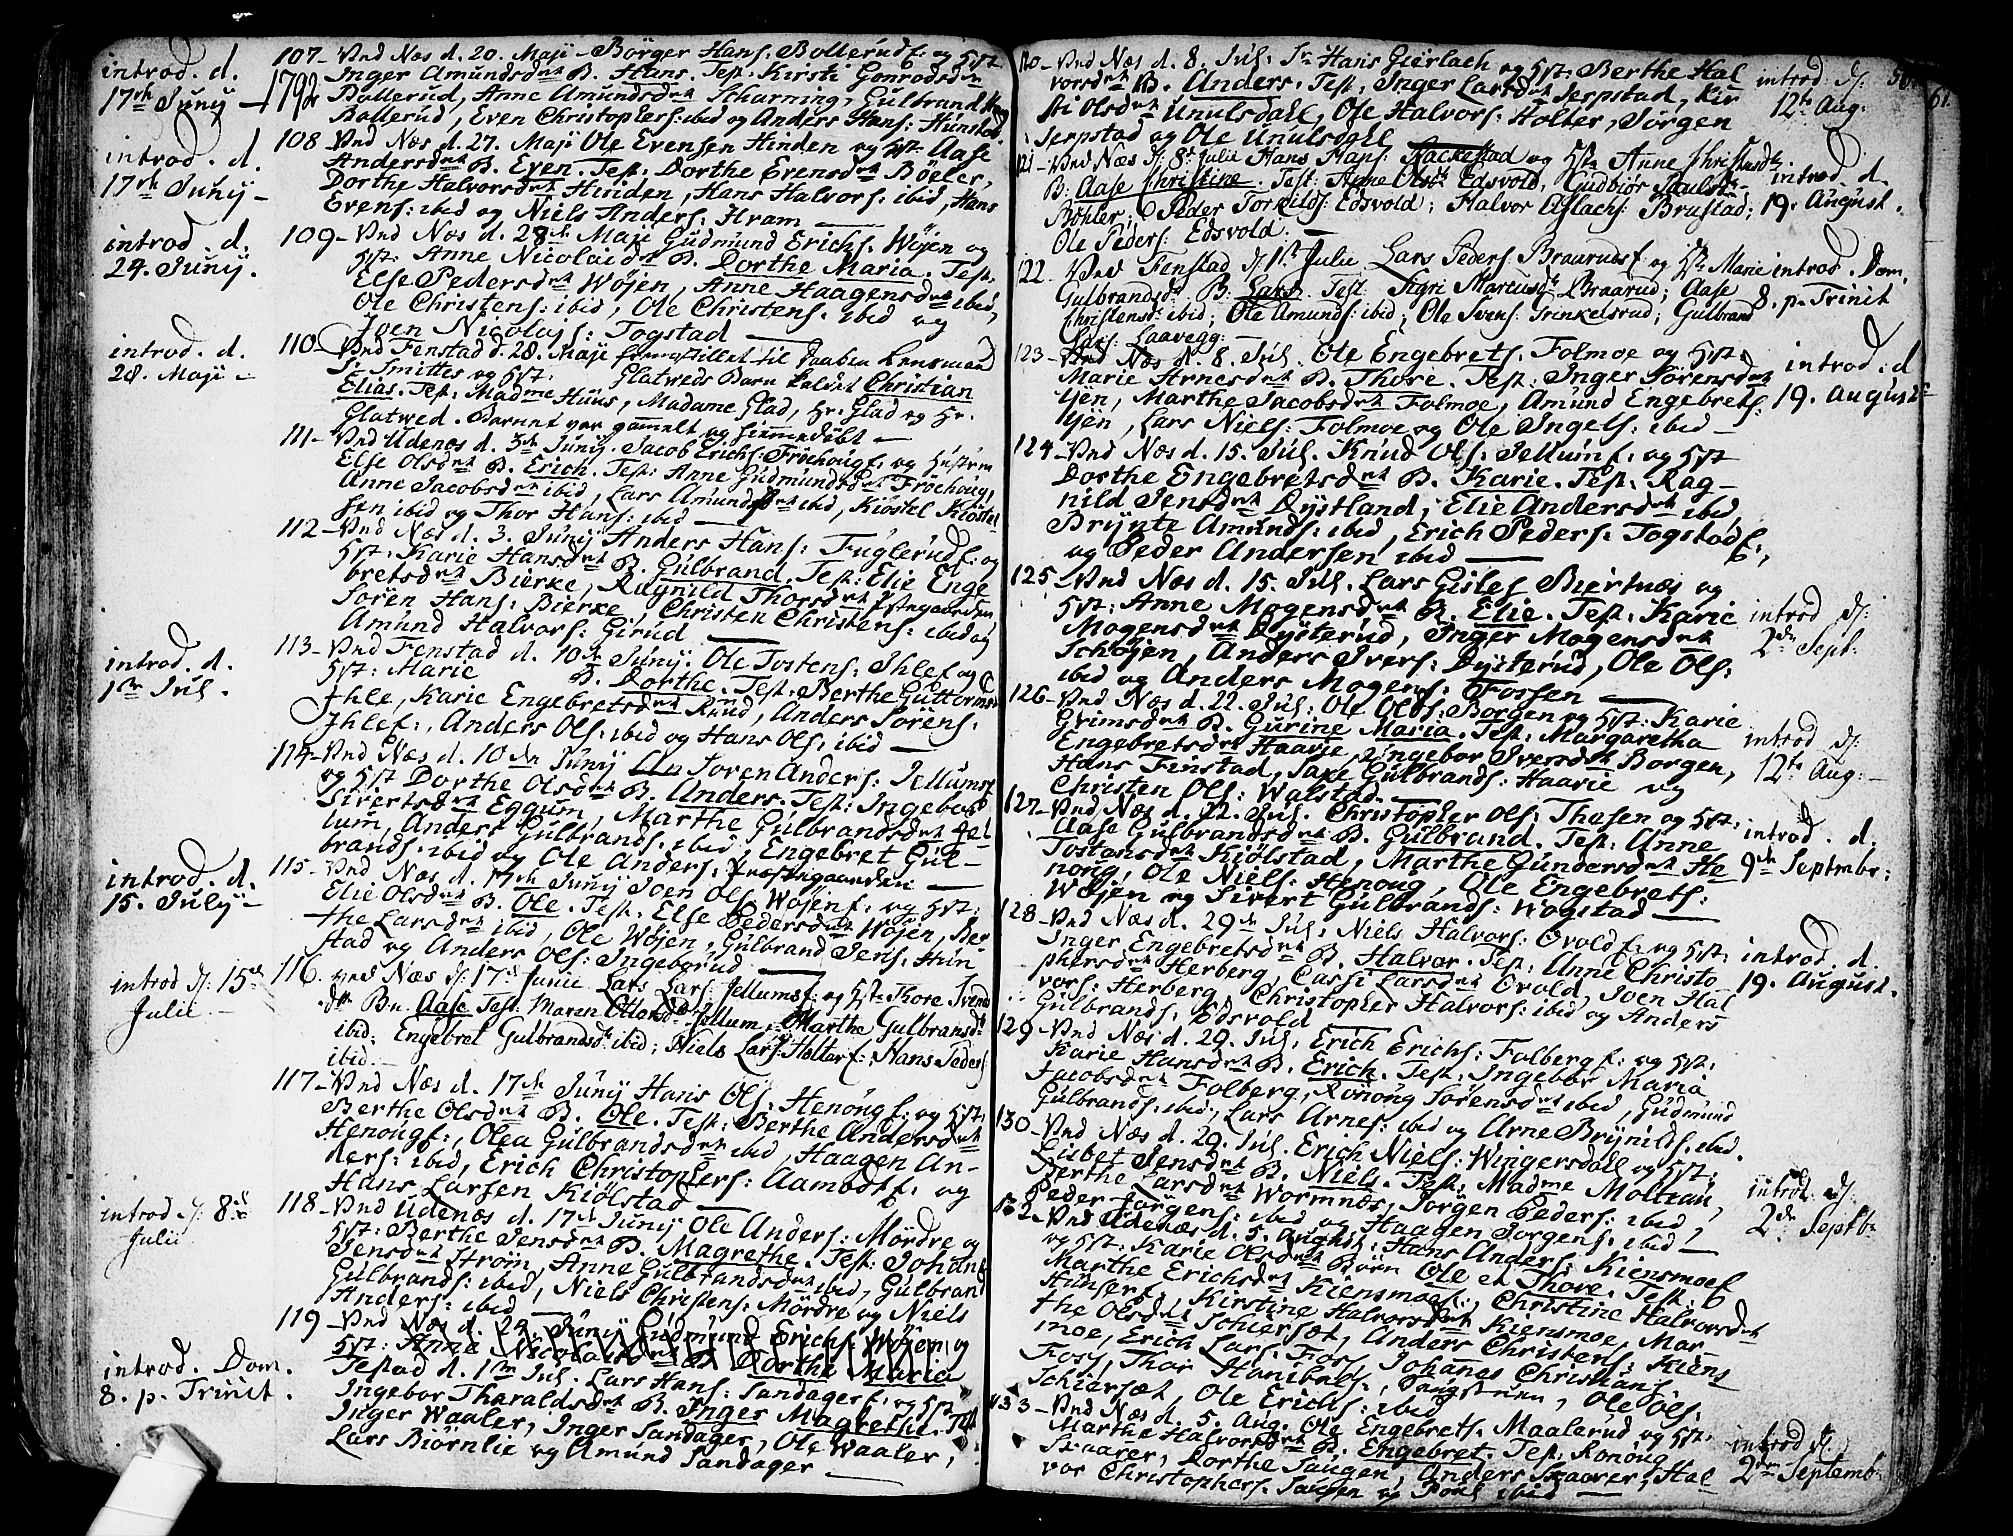 introd. d.
17de Junij
1792
107 - Vnd Næs d. 20. Maji Börger Hans: Bollerud f: og Hst
Inger Amundsdatt B. Hans. Test: Kirsti Gonradsdatt
Bollerud, Anne Amundsdatt Scharning, Gulbrand
Bollerud, Even Christophers: ibid og Anders Hans: Hunstad
introd. d.
17de Junij -
108 Vnd Næs d. 27. Maji Ole Evensen Hinden og Hst. Aase
Andersdatt B. Even. Test: Dorthe Evensdatt Böeler,
Dorthe Halvorsdatt Hinden, Hans Halvors: ibid, Hans
Evens: ibid og Niels Anders: Hvam
introd. d.
24. Junij.
109 - Vnd Næs d. 28de Maji Gudmund Erichs. Wöjen og
Hst: Anne Nicolaidt B. Dorthe Maria. Test:
Else Pedersdatt Wöjen, Anne Haagensdatt ibid,
Ole Christens: ibid, Ole Christens: ibid og
Joen Nicolajs: Togstad
introd. d.
28. Maji -
110 - Vnd Fenstad d. 28. Maji fremstillet til Daaben Lensmand
Sr Smittes og Hst: Glatweds Barn kaldet Christian
Elias. Test: Madme Huus, Madame Glad, Hr. Glad og Hr.
Glatwed. Barnet var gammelt og hiemmedøbt
111 - Vnd Udenæs d. 3de Junij Jacob Erichs: Fröehoug f. og Hustru
Else Olsdatt B. Erich. Test: Anne Gudmundsdatt Fröehoug,
Anne Jacobsdatt ibid, Lars Amunds ibid, Kiöstel Kiöstel
sen ibid og Thor Hans: ibid
112 - Vnd Næs d. 3. Junij Anders Hans: Fuglerud f. og
Hst: Karie Hansdatt B. Gulbrand. Test: Elie Enge
bretsdatt Bierke, Ragnild Thorsdatt Præstegaarden,
Sören Hans: Bierke, Christen Christens: ibid og
Amund Halvors: Girud
introd. d.
1te Jul.
113 - Vnd Fenstad d. 10de Junij. Ole Tostens: Ihle f og
Hst: Marie B. Dorthe. Test: Berthe Guttorms
Ihle, Karie Engebretsdatt Ruud, Anders Sörens:
Ihle f:, Anders Ols: ibid og Hans Ols: ibid
114 - Vnd Næs d. 10de Junij Soren Anders: Jellum f
og Hst Dorthe Olsdatt B. Anders. Test: Ingebor
Sivertsdatt Eggum, Marthe Gulbrandsdatt Jel
lum, Anders Gulbrands: ibid, Engebret Gul-
brands: ibid og Ole Anders: Præstegaarden
introd. d.
15. July -
115 - Vnd Næs d. 17de Junij Joen Ols Wöjen f: og Hst:
Elie Olsdatt B. Ole. Test: Else Pedersdatt Wöjen, Ber
the Larsdatt ibid, Ole Wöjen, Gulbrand Jens: Hun
stad og Anders Ols: Ingeborud
introd d/: 15de
Julii -
116. Vnd Næs d/: 17de Junie Lars Lars: Jellum f: og Hst: Thore Svends
dtr Bn: Aase Test: Maren Ottersdtr Jellum, Marthe Gulbrandsdtr
ibid; Engebret Gulbrandsd: ibid; Niels Lars: Holter f: Hans Peders
ibid
117 - Vnd Næs d. 17de Junij Hans Ols: Henoug f: og Hst:
Berthe Olsdatt B. Ole. Test: Berthe Andersdatt
Henoug f:, Olea Gulbrandsdatt ibid, Haagen An-
ders: ibid, Erich Christophers: Aamodt f: og
Hans Larsen Kiölstad
introd d/: 8de
Julii
118 - Vnd Udenæs d. 17de Junij Ole Anders: Mördre og
Hst: Berthe Jensdatt B. Magrethe. Test: Johan
Jensdatt Ström, Anne Gulbrandsdatt ibid, Gulbrand
Gulbrands: ibid, Niels Christens: Mördre og Niels
Anders: ibid
119 Vnd Næs d. 24. Junij Gudmund Erichs: Wöjen og
Hst: Anne Nicolaidatt B. Dorthe Maria
introd. Dom.
8. p. Trinit.
Testad d. 1te Jul. Lars Hans: Sandager f. og Hst
Ingebor Tharaldsdatt B. Inger Magrethe. Test
Inger Waaler, Inger Sandager, Ole Waaler,
Lars Biörnlie og Amund Sandager
61
120 - Vnd Næs d. 8. Jul: Sr Hans Gierlach og Hst: Berthe Hal
vorsdatt B. Anders. Test: Inger Larsdatt Jerpstad, Kir
sti Olsdatt Unulsdall, Ole Halvors: Holter, Jörgen
Jerpstad og Ole Unulsdall
introd d/:
12te Aug:
121 - Vnd Næs d/: 8de Julii Hans Hans: Hackestad og Hste Anne Christensdtr.
B: Aase Christine. Test: Anne Olsdtr Edsvold, Gudbiör Paulsdtr
Böhler; Peder Torkilds: Edsvold; Halvor Aslachs: Brustad;
Ole Peders: Edsvold.
introd. d.
19. August.
122. Vnd Fenstad d/: 1te Julii Lars Peders: Braarud f og Hst: Marie
Gulbrandsdtr B: Lars. Test. Sigri Marcusdtr Braarud; Aase
Christensdtr ibid; Ole Amunds: ibid; Ole Svens: Trinkelsrud; Gulbrand
Lars: Laavegg
introd. Dom.
8. p. Trinit
123 - Vnd Næs d. 8. Jul. Ole Engebrets: Folmoe og Hst:
Marie Arnesdatt B. Thore. Test: Inger Sörensdatt
Ijen, Marthe Jacobsdatt Folmoe, Amund Engebrets:
Ijen, Lars Niels: Folmoe og Ole Ingels: ibid
introd: d
19. August
124 - Vnd Næs d. 15. Jul. Knud Ols: Jellum f: og Hst
Dorthe Engebretsdatt B. Karie. Test: Rag-
nild Jensdatt Dystland, Elie Andersdatt ibid
Brynte Amunds: ibid, Erich Peders: Togstad f:,
og Peder Andersen ibid
125 - Vnd Næs d. 15. Jul. Lars Gisles Biertnæs og
Hst: Anne Mogensdatt B. Elie. Test: Karie
Mogensdatt Dysterud, Inger Mogensdatt
Schöjen, Anders Ivers: Dysterud, Ole Ols:
ibid og Anders Mogens: Fossen
introd d/:
2de Sept:
126 - Vnd Næs d. 22. Jul: Ole Ols: Borgen og Hst: Karie
Grimsdatt B. Gurine Maria. Test: Margaretha
Engebretsdatt Haavie, Ingebor Svensdatt Borgen,
Hans Finstad, Saxe Gulbrands: Haarie og
Christen Ols: Walstad.
introd d/:
12te Aug:
127 - Vnd Næs d. 22. Jul. Christopher Ols: Thesen og Hst:
Aase Gulbrandsdatt B. Gulbrand. Test: Anne
Tostensdatt Kiölstad, Marthe Gundersdatt He
noug, Ole Niels: Henoug, Ole Engebrets:
Wöjen og Sivert Gulbrands: Wogstad
introd. d.
9de Septembr:
128 - Vnd Næs d. 29de Jul: Niels Halvors: Ovold f: og Hst:
Inger Engebretsdatt B. Halvor. Test: Anne Christo
phersdatt Herberg, Cassi Larsdatt Ovold, Joen Hal
vors: Herberg, Christopher Halvors: ibid og Anders
Gulbrands: Edsvold
introd. d.
19. August.
129 - Vnd Næs d. 29. Jul: Erich Erichs: Folberg f: og Hst:
Karie Hansdatt B. Erich. Test: Ingebor Maria
Jacobsdatt Folberg, Ronoug Sörensdatt ibid, Gudmund
Gulbrands: ibid, Lars Arnes: ibid og Arne Brynilds: ibid.
130 - Vnd Næs d. 29. Jul. Erich Niels: Wingersdall og Hst:
Lisbet Jensdatt B. Niels. Test: Madme Moltzau,
Berthe Larsdatt Wormnæs, Jörgen Peders: ibid,
Peder Jörgens: ibid og Haagen Jorgens: ibid
introd. d/:
2de Septb:
132 - Vnd Udenæs d. 5. Augusti Hans Anders: Kiensmoe f
og Hst: Karie Olsdatt Börn Ole et Thore. Test:
Marthe Erichsdatt Kiensmoe f:, Christine Halvorsdatt
Hunser f:, Kirstine Halvorsdatt Kiensmoe, Mar-
the Olsdatt Schiersæt, Anders Christens: Kiens
moe, Erich Lars: Foss, Johanes Christians:
Foss, Thor Hanibals:, Ole Ols:
Schiersæt, Ole Erichs: ibid
133 - Vnd Næs d. 5. Aug. Ole Engebrets. Maalerud og Hst.
Marthe Halvorsdatt B. Engebret. Test: Ronoug
Skaarer, Dorthe Saugen, Anders Skaarer, Hal
vor Christophers: Saugen og Poul ibid
introd d/:
2den Septemb: